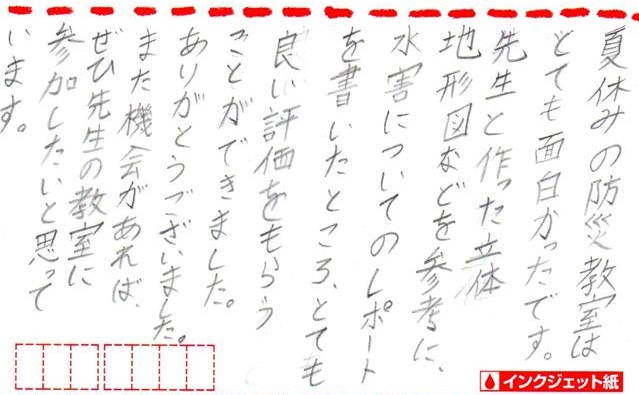 夏休みの防災教室は
とても面白かったです。
先生と作った立体
地形図などを参考に、
水害についてのレポート
を書いたところ、とても
良い評価をもらう
ことができました。
ありがとうございました。
また機会があれば、
ぜひ先生の教室に
参加したいと思って
います。
インクジェット紙